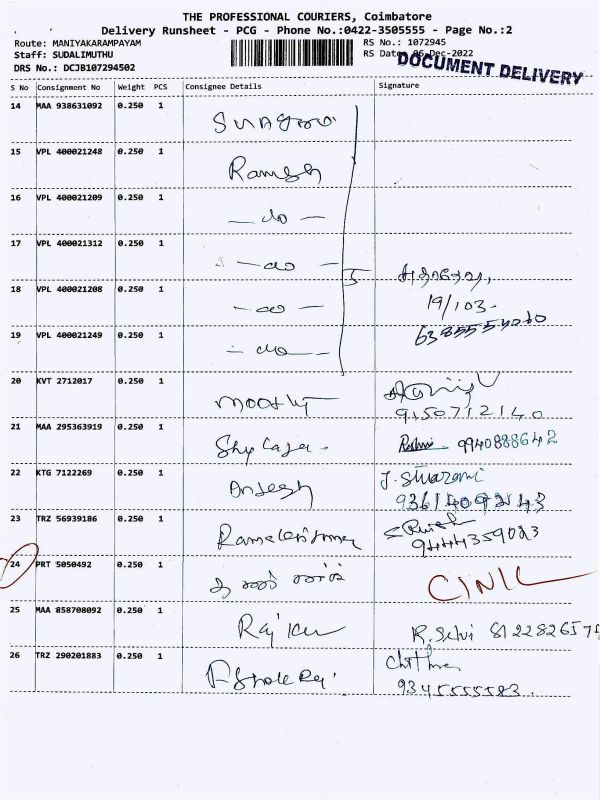 THE PROFESSIONAL COURIERS, Coimbatore
Delivery Runsheet - PCG - Phone No.:0422-3505555 - Page No.:2
Route: MANIYAKARAMPAYAM
RS No.: 1072945
Staff: SUDALIMUTHU
RS Date: 06-Dec-2022
DRS No.: DCJB107294502
DOCUMENT DELIVERY
S No Consignment No Weight PCS Consignee Details Signature
14 MAA 938631092 0.250 1
15 VPL 400021248 0.250 1 Ramesh
16 VPL 400021209 0.250 1 — do —
17 VPL 400021312 0.250 1 — do —
18 VPL 400021208 0.250 1 — do —
19/103.
19 VPL 400021249 0.250 1 — do —
20 KVT 2712017 0.250 1 Moorthy
9150712140
21 MAA 295363919 0.250 1 9940888642
22 KTG 7122269 0.250 1
23 TRZ 56939186 0.250 1 Ramakrishnan
9444359083
24 PRT 5050492 0.250 1
25 MAA 858708092 0.250 1 R. Selvi
26 TRZ 290201883 0.250 1 Chithra
9345555583.